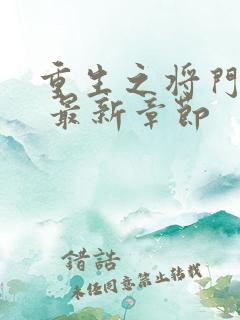 重生之将門
最新章節
錯誥
未经同意禁止转载